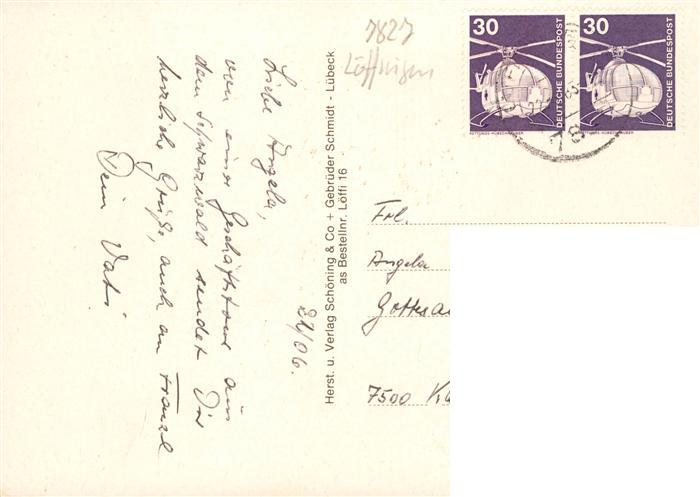 7827
Löffingen
30
DEUTSCHE BUNDESPOST
RETTUNGS-HUBSCHRAUBER
30
DEUTSCHE BUNDESPOST
RETTUNGS-HUBSCHRAUBER
22/06.
Liebe Angela,
von einer Geschäftstour aus
dem Schwarzwald sendet Dir
herzliche Grüße, auch an Franzel
Dein Vati.
Herst. u. Verlag Schöning & Co + Gebrüder Schmidt - Lübeck
as Bestellnr. Löffi 16
Frl.
Angela
Gottesau
7500 Ka